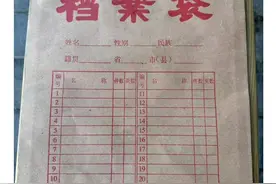 档案袋
姓名 性别 民族
籍贯 省 市(县)
编号 名 称 份数 页数 编号 名 称 份数 页数
1 11
2 12
3 13
4 14
5 15
6 16
7 17
8 18
9 19
10 20